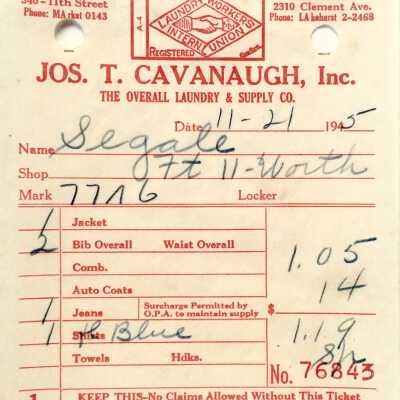 340-11th Street
Phone: MArket 0143
A-4
LAUNDRY WORKERS
INTERN'L UNION
REGISTERED
2310 Clement Ave.
Phone: LAkehurst 2-2468
JOS. T. CAVANAUGH, Inc.
THE OVERALL LAUNDRY & SUPPLY CO.
Date 11-21 1945
Name Segale
Shop Ft 11-Worth
Mark 7776 Locker
1 Jacket
2 Bib Overall Waist Overall 1.05
Comb.
Auto Coats 14
1 Jeans Surcharge Permitted by O.P.A. to maintain supply $
1 Shirts Blue 1.19
Towels Hdks.
No. 76843
1 KEEP THIS-No Claims Allowed Without This Ticket